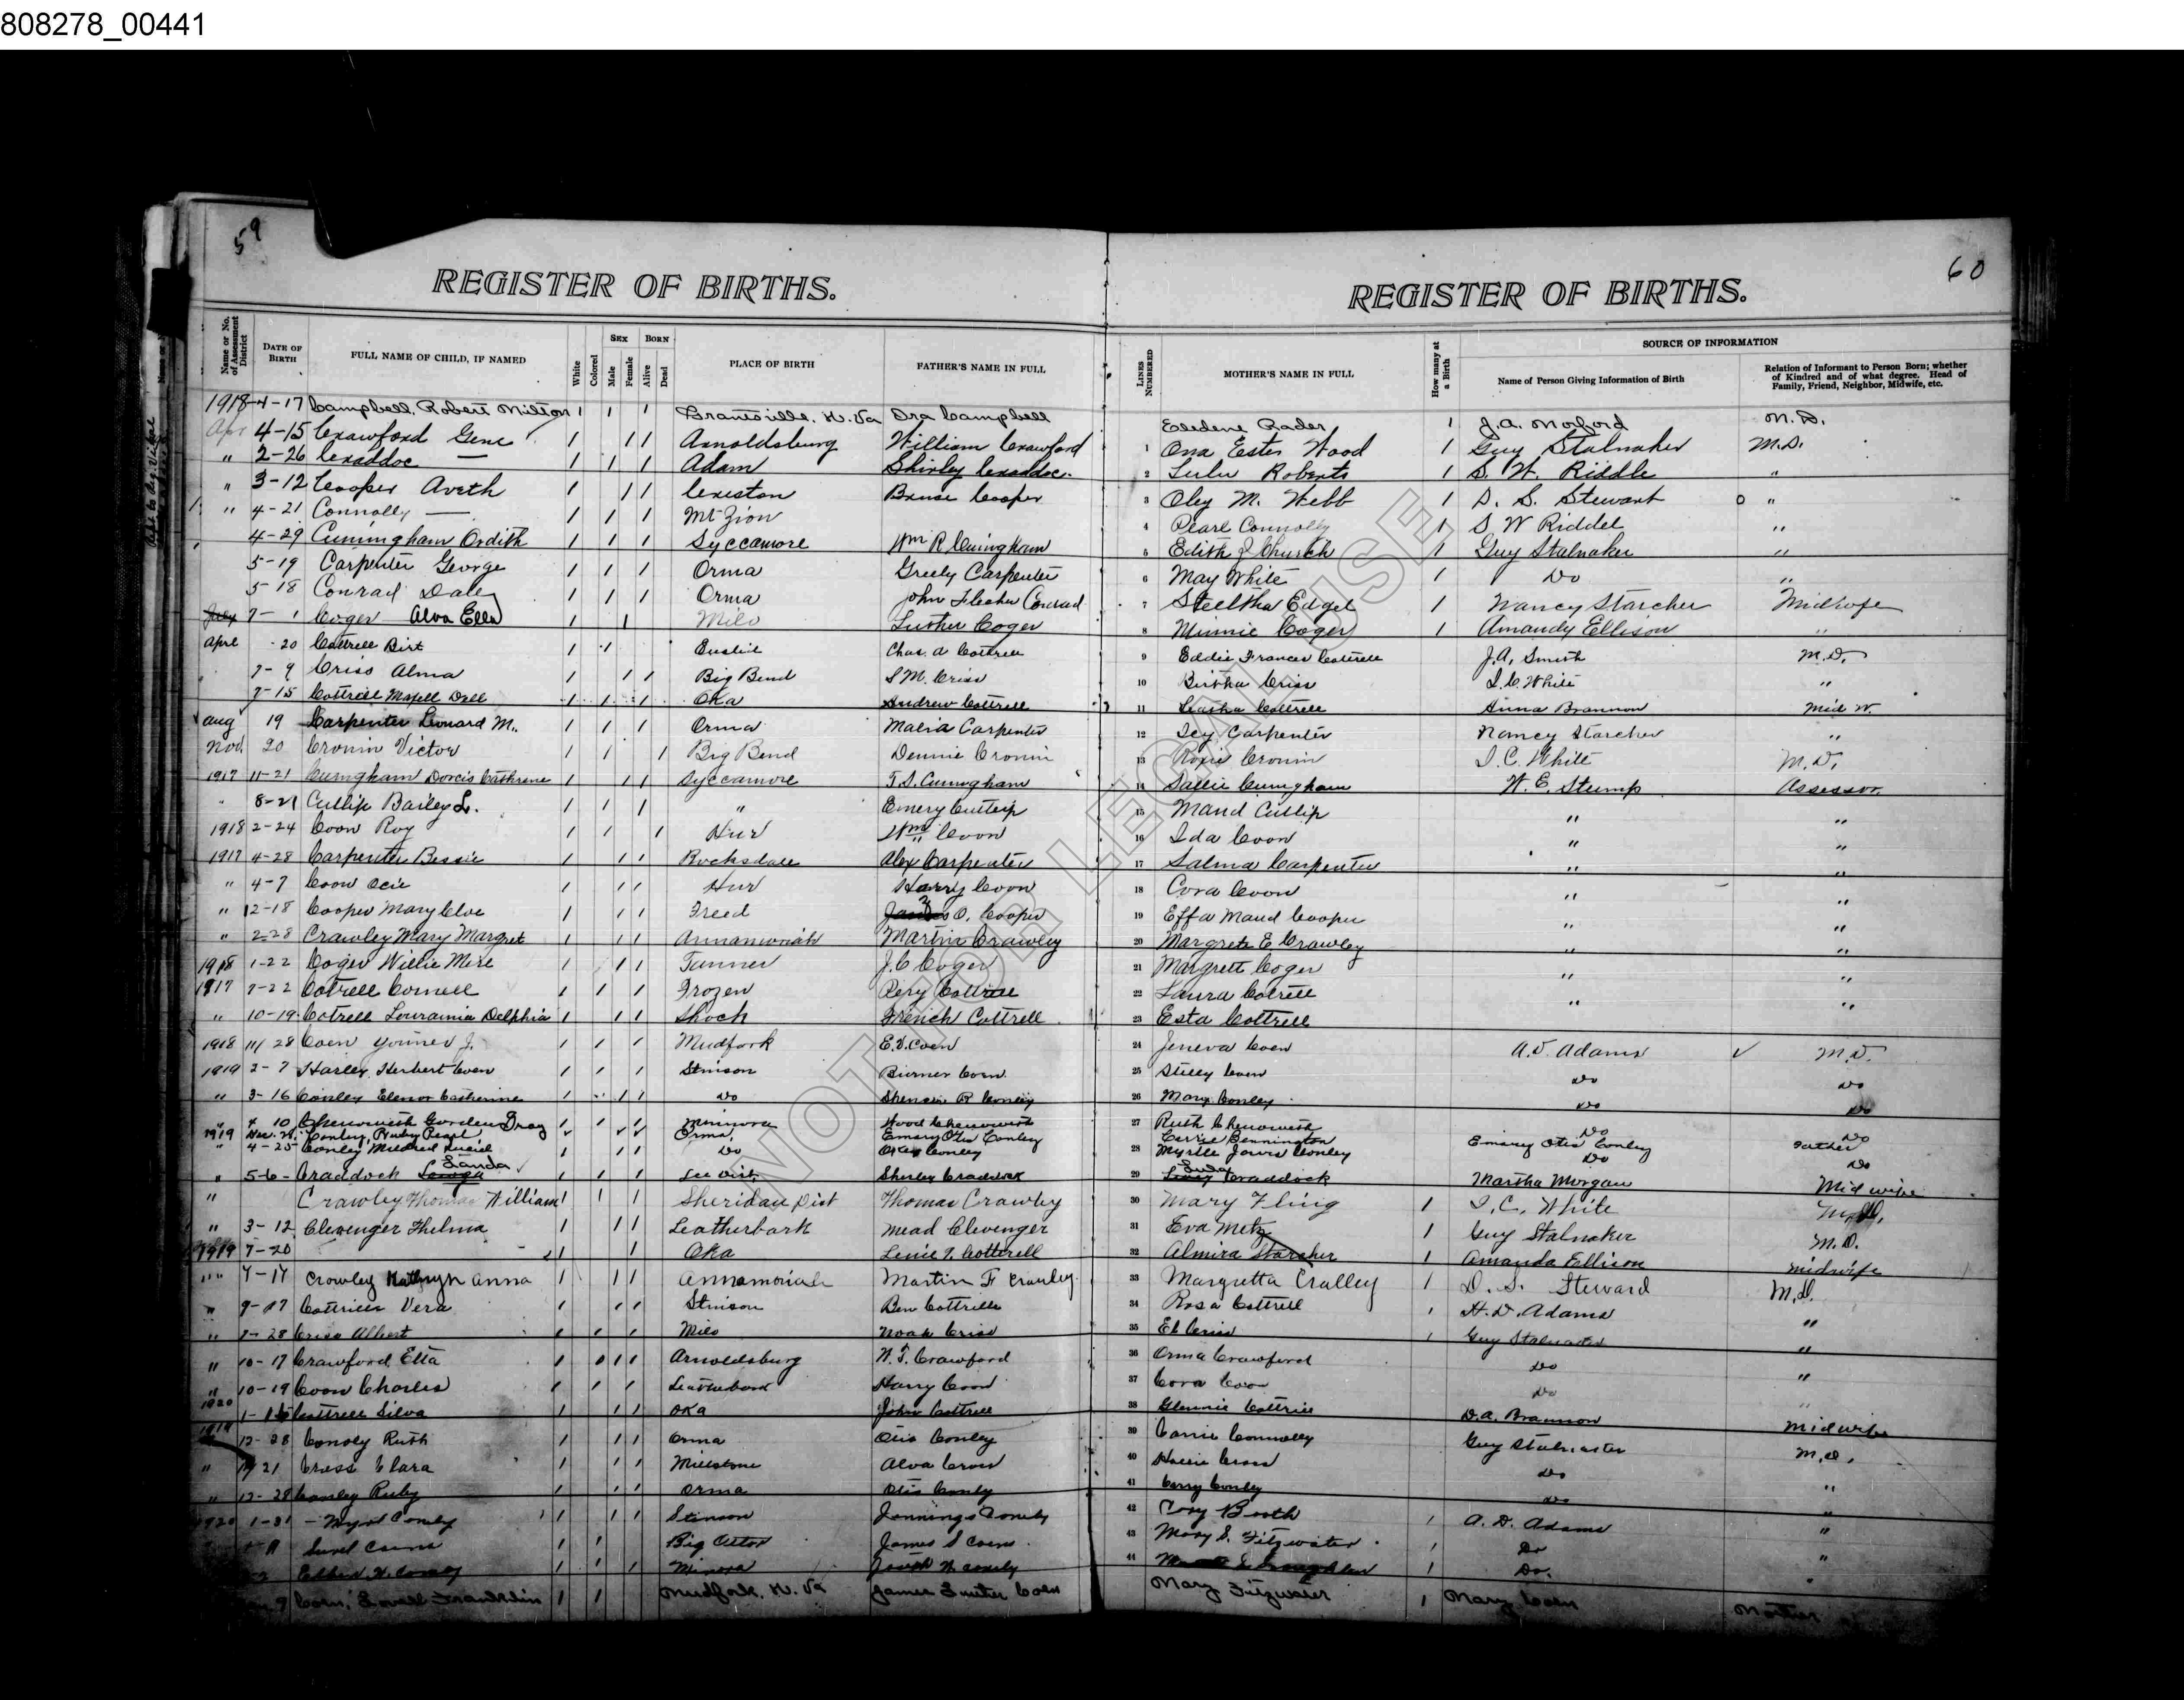 808278_00441
59
60
REGISTER OF BIRTHS.
REGISTER OF BIRTHS.
Name or No. of Assessment District
DATE OF BIRTH
FULL NAME OF CHILD, IF NAMED
White
Colored
SEX
Male
Female
BORN
Alive
Dead
PLACE OF BIRTH
FATHER'S NAME IN FULL
LINES NUMBERED
MOTHER'S NAME IN FULL
How many at a Birth
SOURCE OF INFORMATION
Name of Person Giving Information of Birth
Relation of Informant to Person Born; whether of Kindred and of what degree. Head of Family, Friend, Neighbor, Midwife, etc.
1918 4-17 Campbell, Robert Milton 1 1 1 Grantsville, W. Va Ora Campbell Eledene Rader 1 J.A. Morford M.D.
Apr 4-15 Crawford Gene 1 1 1 Arnoldsburg William Crawford 1 Ona Ester Wood 1 Guy Stalnaker M.D.
" 2-26 Craddoc — 1 1 1 Adam Shirley Craddoc. 2 Lulu Roberts 1 S. W. Riddle "
" 3-12 Cooper Aveth 1 1 1 Creston Bruce Cooper 3 Oley M. Webb 1 D. S. Stewart "
" 4-21 Connolly — 1 1 1 Mt Zion 4 Pearl Connolly 1 S. W Riddel "
4-29 Cuningham Ordith 1 1 1 Syccamore Wm R Cuningham 5 Edith J Church 1 Guy Stalnaker "
5-19 Carpenter George 1 1 1 Orma Greely Carpenter 6 May White 1 Do "
5-18 Conrad Daley 1 1 1 Orma John Flecher Conrad 7 Steeltha Edgel 1 Nancy Starcher Midwife
July 7-1 Coger Alva Ella 1 1 Milo Luther Coger 8 Minnie Coger 1 Amandy Ellison "
Aprl 20 Cottrell Birt 1 1 Chas. A Cottrell 9 Eddie Frances Cottrell J.A. Smith M.D.
7-9 Criss Alma 1 1 1 Big Bend S M. Criss 10 Birtha Criss I. C. White "
7-15 Cottrill Maxell Dell 1 1 1 Oka Andrew Cottrell 11 Cottrell Anna Brannon Mid W.
Aug 19 Carpenter Leonard M. 1 1 1 Orma Carpenter 12 Icy Carpenter Nancy Starcher "
Nov. 20 Cronin Victor 1 1 1 Big Bend Dennie Cronin 13 Roxie Cronin I. C. White M.D.
1917 11-21 Cuningham Dorcis Cathrene 1 1 1 Syccamore T.S. Cuningham 14 Sallie Cuningham W. E. Stump Assessor.
" 8-21 Cutlip Bailey L. 1 1 1 " Emery Cutlip 15 Maud Cutlip " "
1918 2-24 Coon Roy 1 1 1 Hur Wm Coon 16 Ida Coon " "
1917 4-28 Carpenter Bessie 1 1 1 Rocksdale Alex Carpenter 17 Salma Carpenter " "
" 4-7 Coon Ocie 1 1 1 Hur Harry Coon 18 Cora Coon " "
" 12-18 Cooper Mary Cloe 1 1 1 Freed O. Cooper 19 Effa Maud Cooper " "
" 2-28 Crawley Mary Margret 1 1 1 Annamoriah Martin Crawley 20 Margrete E. Crawley " "
1918 1-22 Coger Willie 1 1 1 Tanner J. C Coger 21 Margrett Coger " "
1917 7-22 Cotrell Cornell 1 1 1 Frozen Pery Cottrell 22 Laura Cotrell " "
" 10-19 Cotrell Lourainia Delphia 1 1 1 Shock French Cottrell 23 Esta Cottrell
1918 11/28 Coen J. 1 1 1 Mudfork E.V. Coen 24 Jeneva Coen A.D. Adams M.D.
1919 2-7 Harley Herbert Coen 1 1 1 Stinson Coen 25 Coen Do Do
" 3-16 Conley Elenor Catherine 1 1 1 Do R Conley 26 Mary Conley Do Do
" 4 10 Chenoweth Gorden Dray 1 Minnora Wood Chenoweth 27 Ruth Chenoweth Do Do
1919 Conley, Ruby Pearl Orma, Emary Otis Conley Carrie Bennington Emary Otis Conley Father
" 4-25 Conley Mildred 1 1 1 Do Conley 28 Myrtle Jarvis Conley Do Do
" 5-6 Craddock Landa 1 1 1 Lee Dist. Sherley Craddock 29 Craddock Martha Morgan Mid wife
" Crawley Thomas William 1 1 1 Sheridan Dist Thomas Crawley 30 Mary Fling 1 I. C. White M.D.
" 3-12 Clevenger Thelma 1 1 1 Leatherbark Mead Clevenger 31 Eva Metz 1 Guy Stalnaker M.D.
1919 7-20 1 1 Oka Cotterell 32 Almira Starcher 1 Amanda Ellison midwife
" 7-17 Crowley Kathryn Anna 1 1 1 Annamoriah Martin F Crawley 33 Margretta Cralley 1 D. S. Steward M.D.
" 9-17 Cottrill Vera 1 1 1 Stinson Ben Cottrill 34 Rosa Cottrell 1 A. D. Adams "
" 7-28 Criss Albert 1 1 1 Milo Noah Criss 35 El Criss 1 Guy Stalnaker "
" 10-17 Crawford Etta 1 1 1 Arnoldsburg W. T. Crawford 36 Orma Crawford Do "
" 10-19 Coon Charles 1 1 1 Leatherbark Harry Coon 37 Cora Coon Do "
1920 Cottrell Silva 1 1 1 Oka John Cottrell 38 Glennie Cottrill D.A. Brannon Midwife
1919 12-28 Conoly Ruth 1 1 1 Orma Otis Conley 39 Carrie Connolly Guy Stalnaker M.D.
" 21 Cross Clara 1 1 1 Millstone Alva Cross 40 Cross Do "
" 12-28 Conley Ruby 1 1 1 Orma Otis Conly 41 Conley Do "
1920 1-31 Conley 1 1 1 Stinson Jennings Conely 42 Booth 1 A. D. Adams "
1 1 Big James S Coens 43 Mary S. Fitzwater 1 Do "
1 1 1 Minora 44 1 Do.
Coen, Lovell Franklin 1 1 Mudfork, W. Va James Coen Mary Fitzwater 1 Mary Coen Mother
NOT FOR LEGAL USE